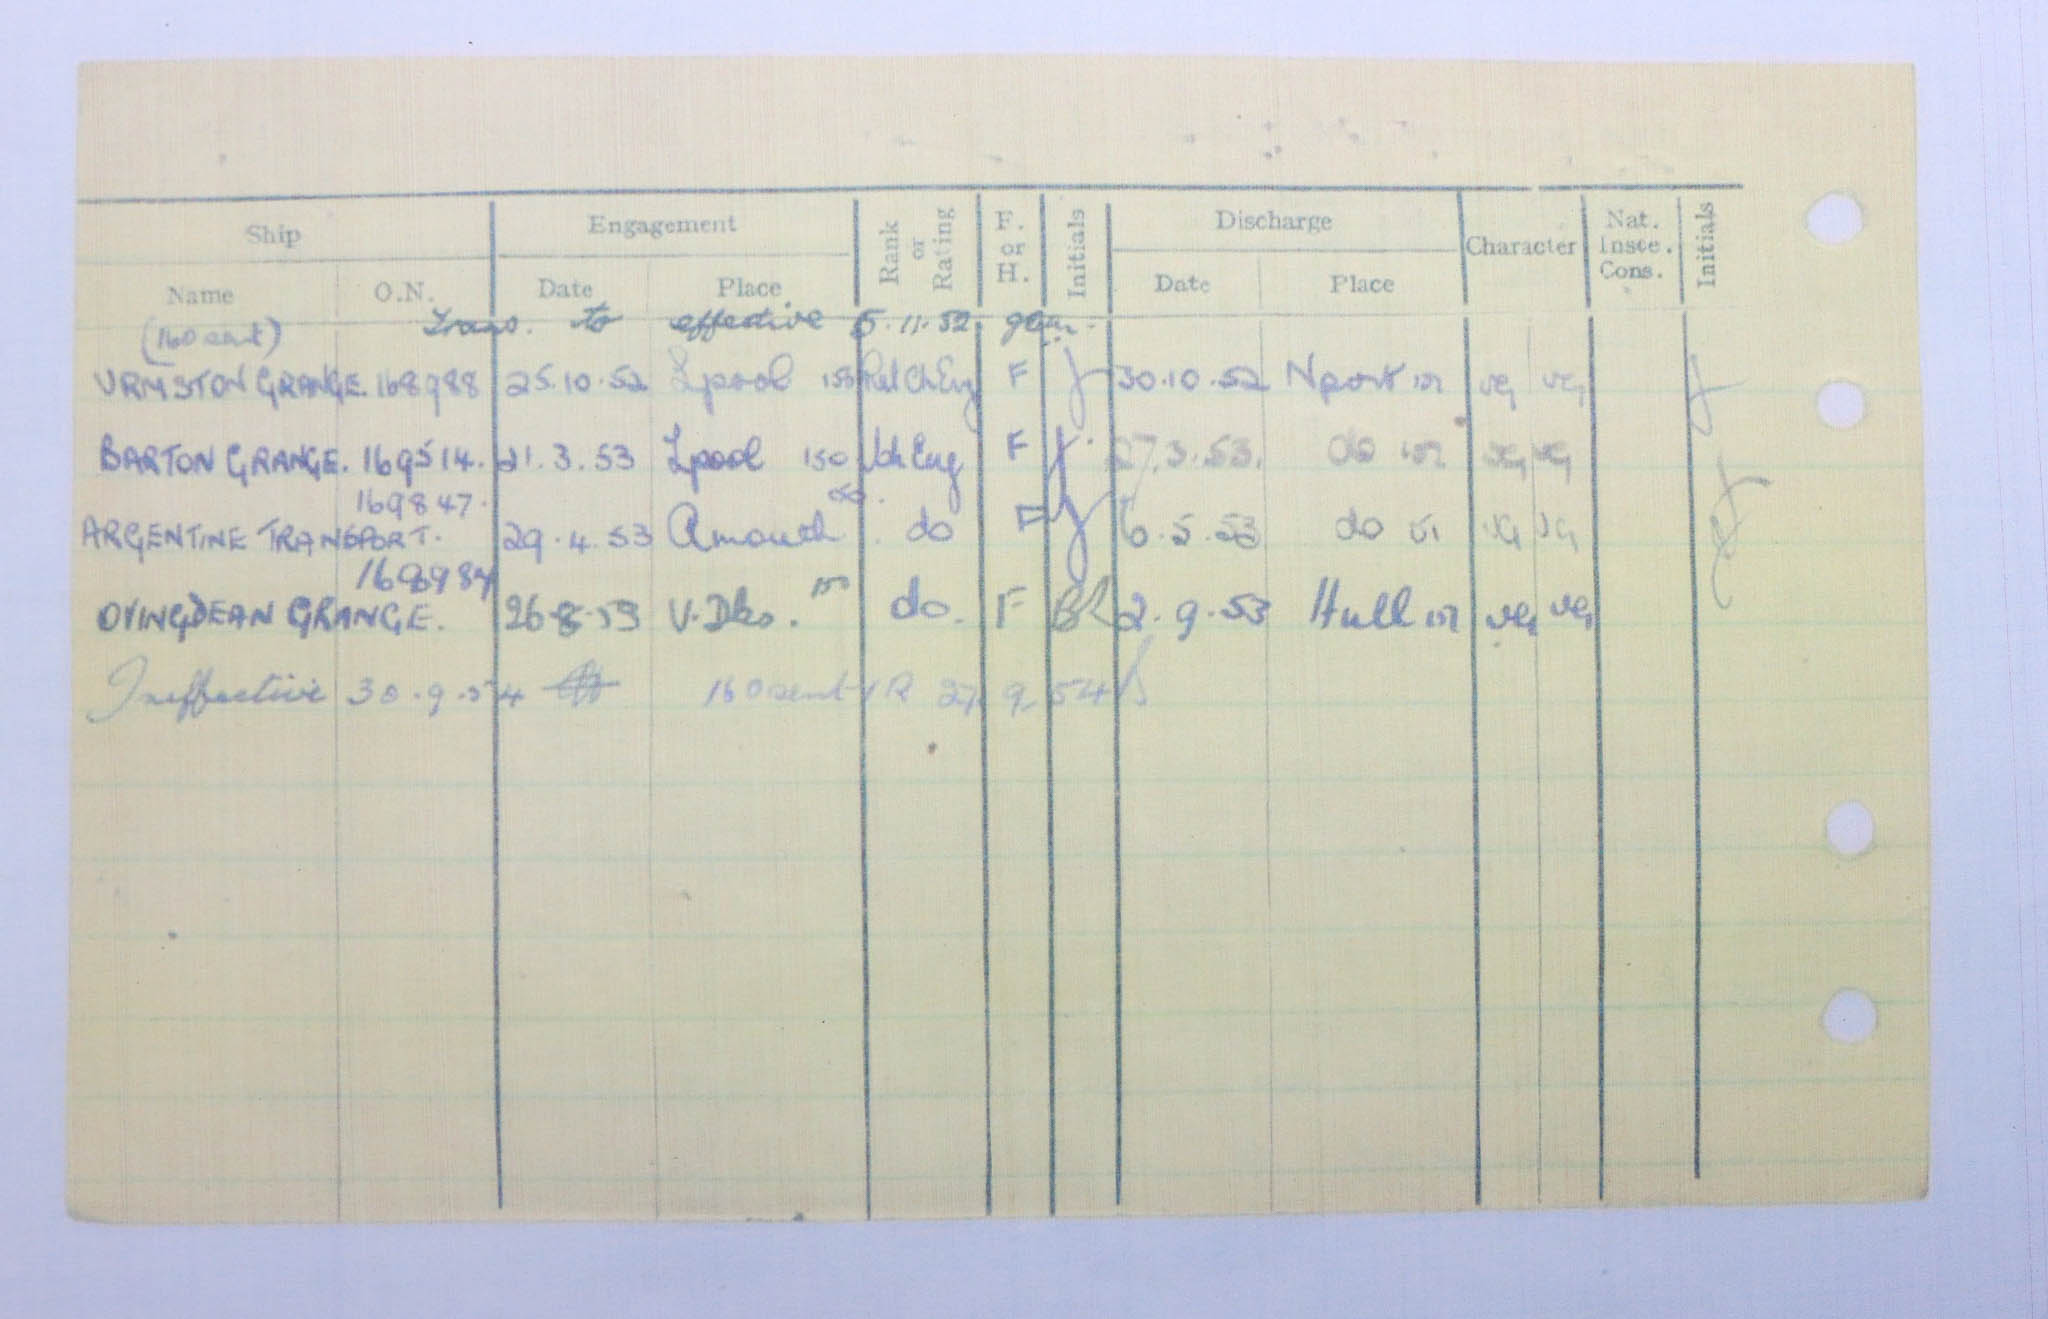 Ship Engagement Rank or Rating F. or H. Initials Discharge Character Nat. Insce. Cons. Initials
Name O.N. Date Place Date Place
(160 sent) Trans. to effective 5.11.52
URMSTON GRANGE. 168988 25.10.52 Lpool 150 Ch Eng F 30.10.52 Nport 151 VG VG
BARTON GRANGE. 169514. 21.3.53 Lpool 150 Ch Eng F 27.3.53. do 151 VG VG
169847. do.
ARGENTINE TRANSPORT. 29.4.53 Amouth do F 6.5.53 do 151 VG VG
168987 150
OVINGDEAN GRANGE. 26.8.53 V.Dks. do. F 2.9.53 Hull 151 VG VG
Ineffective 30.9.54 160 sent 1R 27 9 54